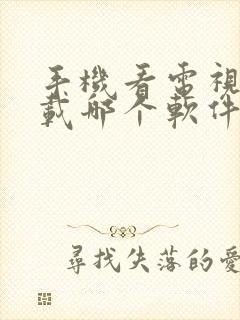 手機看電視
載哪个軟件
尋找失落的愛